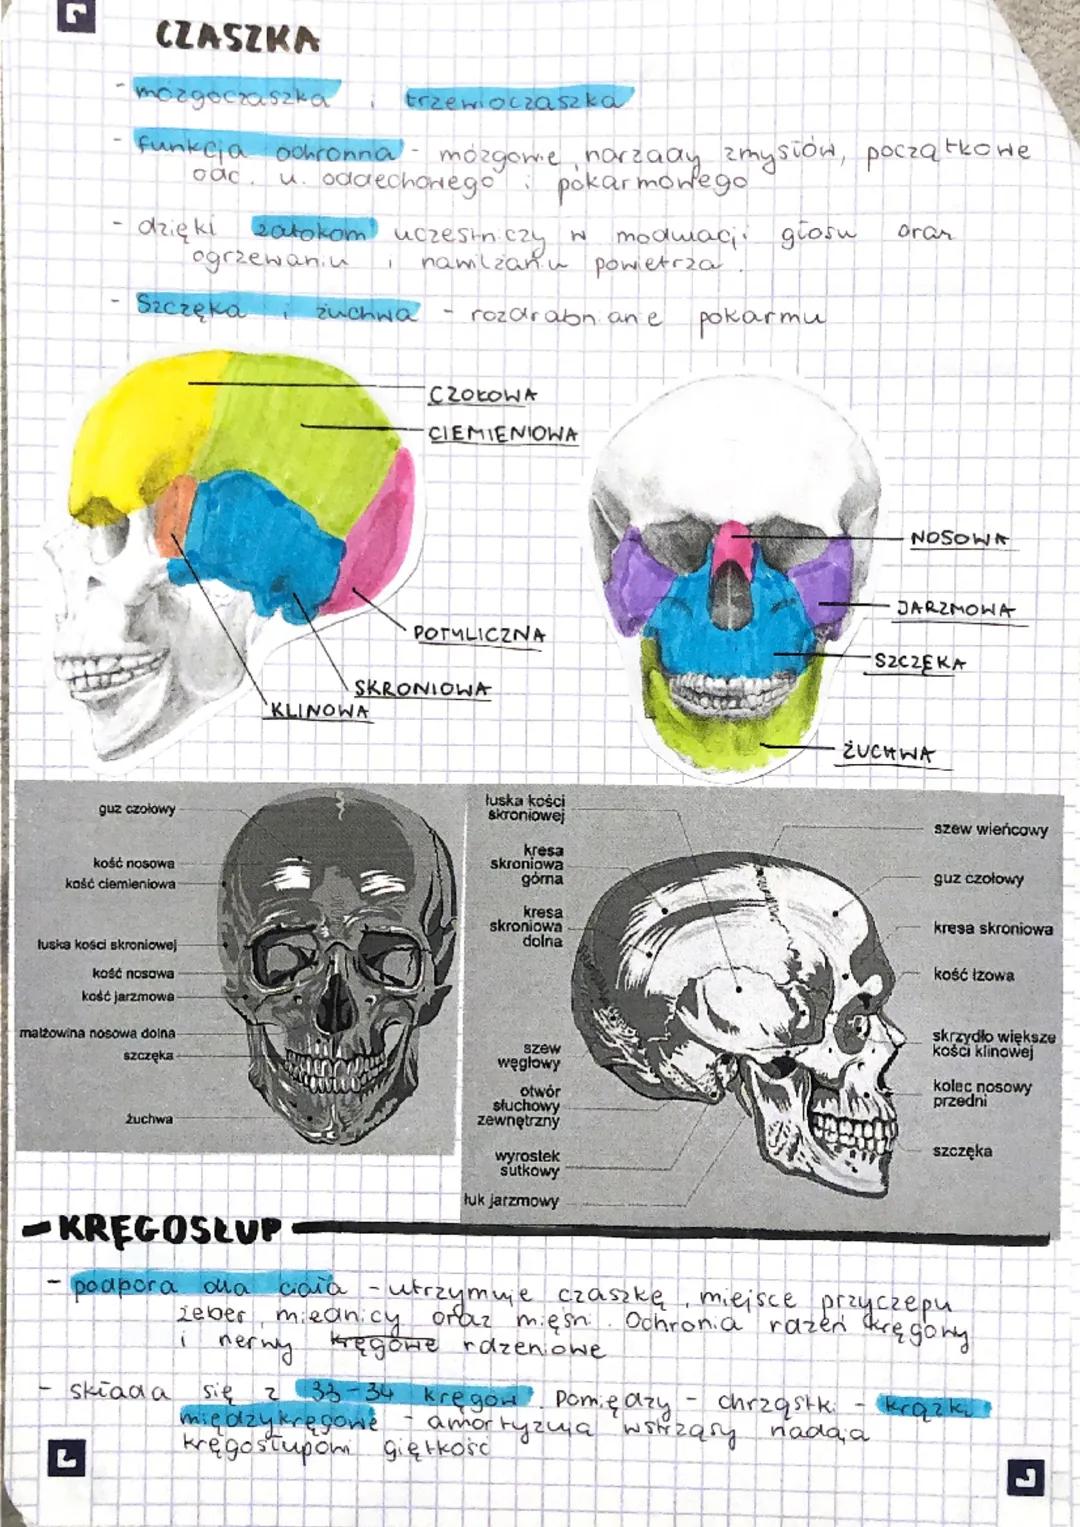 CZASZKA
- mózgoczaszka i trzewioczaszka
- funkcja ochronna - mózgowie, narządy zmysłów, początkowe
odc. u. oddechowego i pokarmowego
- dzięki zatokom uczestniczy w modulacji głosu oraz
ogrzewaniu i nawilżaniu powietrza.
- Szczęka i żuchwa - rozdrabnianie pokarmu
CZOŁOWA
CIEMIENIOWA
POTYLICZNA
SKRONIOWA
KLINOWA
NOSOWA
JARZMOWA
SZCZĘKA
ŻUCHWA
guz czołowy
kość nosowa
kość ciemieniowa
łuska kości skroniowej
kość nosowa
kość jarzmowa
małżowina nosowa dolna
szczęka
żuchwa
łuska kości
skroniowej
kresa
skroniowa
górna
kresa
skroniowa
dolna
szew
węgłowy
otwór
słuchowy
zewnętrzny
wyrostek
sutkowy
łuk jarzmowy
szew wieńcowy
guz czołowy
kresa skroniowa
kość łzowa
skrzydło większe
kości klinowej
kolec nosowy
przedni
szczęka
KRĘGOSŁUP
- podpora dla ciała - utrzymuje czaszkę, miejsce przyczepu
żeber, miednicy oraz mięśni. Ochrania rdzeń kręgowy
i nerwy kręgowe rdzeniowe
- składa się z 33-34 kręgów. Pomiędzy - chrząstki - krążki
międzykręgowe - amortyzują wstrząsy nadają
kręgosłupowi giętkość